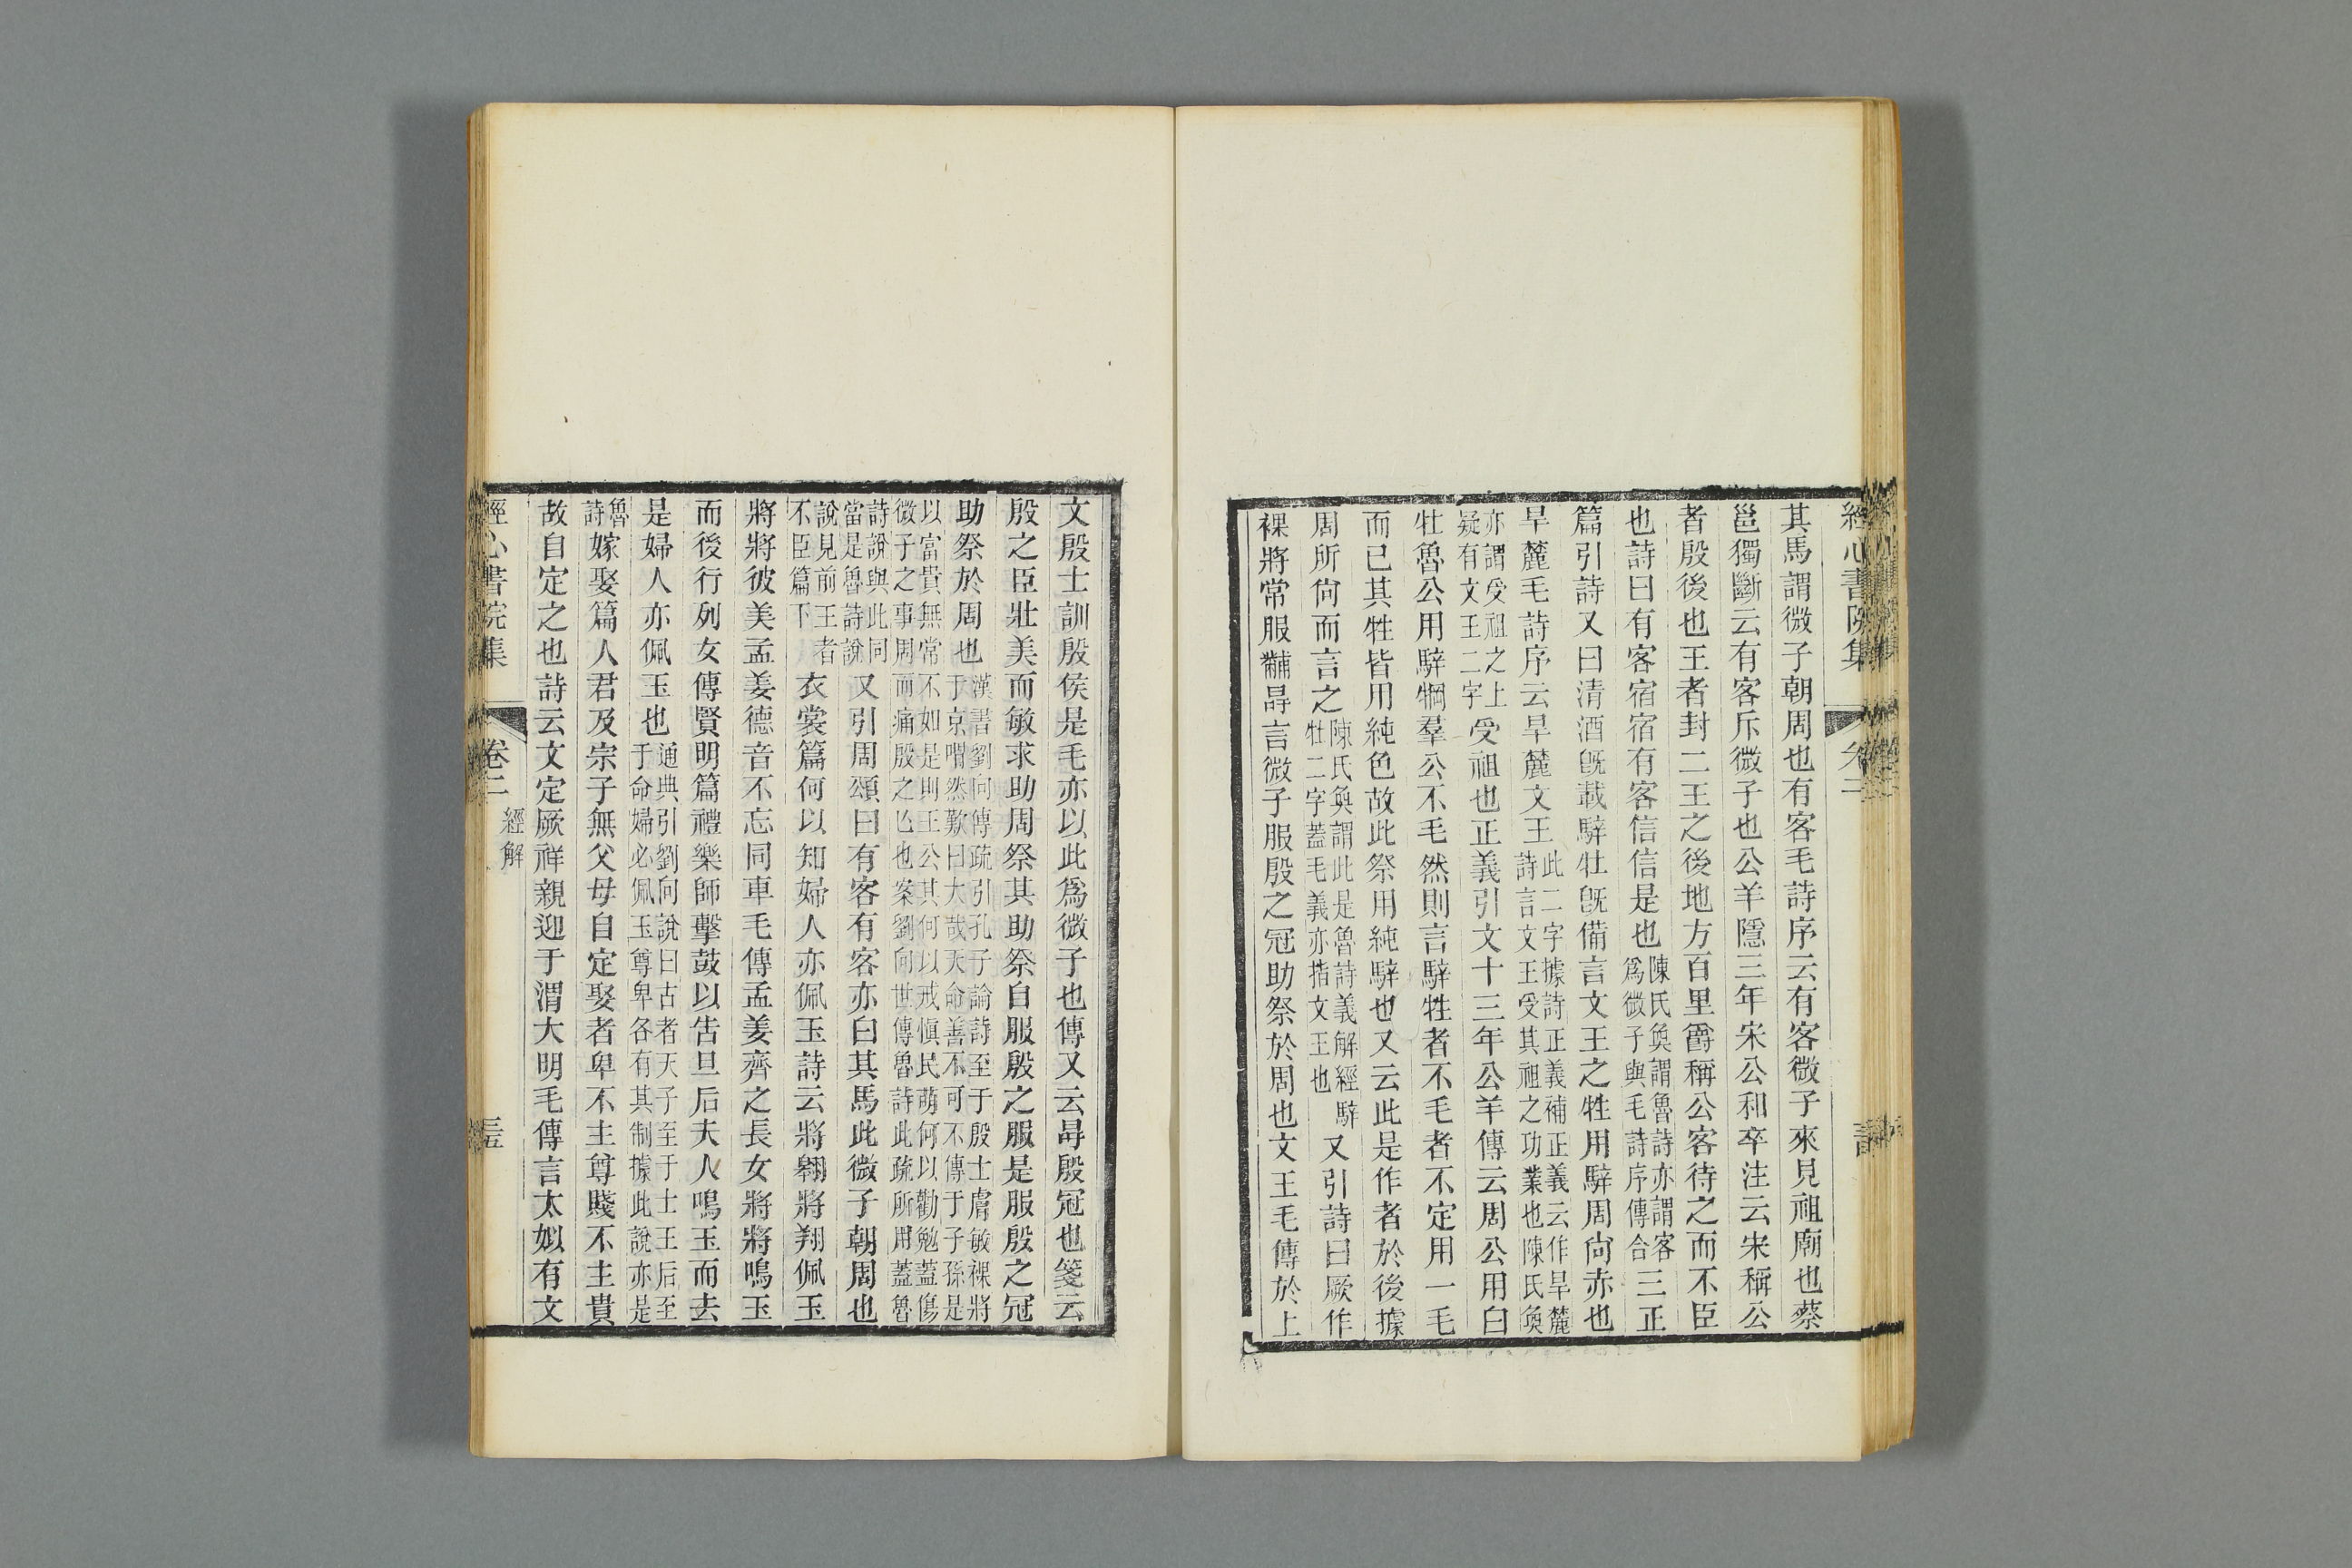 經心書院集
其馬謂微子朝周也有客毛詩序云有客微子來見祖廟也蔡
邕獨斷云有客斥微子也公羊隱三年宋公和卒注云宋稱公
者殷後也王者封二王之後地方百里爵稱公客待之而不臣
也詩曰有客宿宿有客信信是也陳氏奐謂魯詩亦謂客爲微子與毛詩序傳合三正
篇引詩又曰清酒旣載騂牡旣備言文王之牲用騂周尙赤也
旱麓毛詩序云旱麓文王此二字據詩正義補正義云作旱麓詩言文王受其祖之功業也陳氏奐
亦謂受祖之上疑有文王二字受祖也正義引文十三年公羊傳云周公用白
牡魯公用騂犅羣公不毛然則言騂牲者不毛者不定用一毛
而已其牲皆用純色故此祭用純騂也又云此是作者於後據
周所尙而言之陳氏奐謂此是魯詩義解經騂牡二字蓋毛義亦指文王也又引詩曰厥作
祼將常服黼冔言微子服殷之冠助祭於周也文王毛傳於上
文殷士訓殷侯是毛亦以此爲微子也傳又云冔殷冠也箋云
殷之臣壯美而敏求助周祭其助祭自服殷之服是服殷之冠
助祭於周也漢書劉向傳疏引孔子論詩至于殷士膚敏祼將于京喟然歎曰大哉天命善不可不傳于子孫是
以富貴無常不如是則王公其何以戒愼民萌何以勸勉蓋傷微子之事周而痛殷之亾也案劉向世傳魯詩此疏所用蓋魯
詩說與此同當是魯詩說又引周頌曰有客有客亦白其馬此微子朝周也
說見前王者不臣篇下衣裳篇何以知婦人亦佩玉詩云將翺將翔佩玉
將將彼美孟姜德音不忘同車毛傳孟姜齊之長女將將鳴玉
而後行列女傳賢明篇禮樂師擊鼓以告旦后夫人鳴玉而去
是婦人亦佩玉也通典引劉向說曰古者天子至于士王后至于命婦必佩玉尊卑各有其制據此說亦是
魯詩嫁娶篇人君及宗子無父母自定娶者卑不主尊賤不主貴
故自定之也詩云文定厥祥親迎于渭大明毛傳言太姒有文
經心書院集
卷二
經解
三五